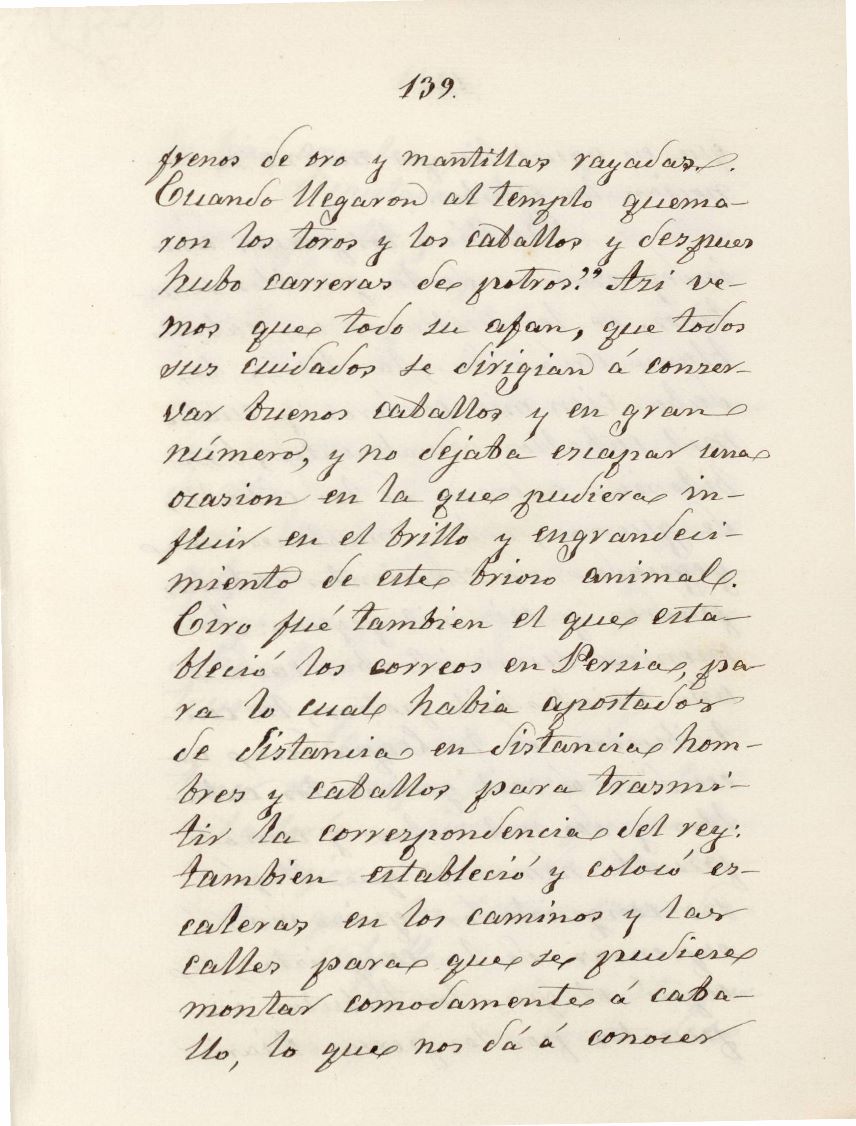 139.
frenos de oro y mantillas rayadas.
Cuando llegaron al templo quema-
ron los toros y los caballos y despues
hubo carreras de potros." Asi ve-
mos que todo su afan, que todos
sus cuidados se dirigian á conser-
var buenos caballos y en gran
número, y no dejaba escapar una
ocasion en la que pudiera in-
fluir en el brillo y engrandeci-
miento de este brioso animal.
Ciro fué tambien el que esta-
bleció los correos en Persia, pa-
ra lo cual habia apostados
de distancia en distancia hom-
bres y caballos para trasmi-
tir la correspondencia del rey:
tambien estableció y colocó es-
caleras en los caminos y las
calles para que se pudiese
montar comodamente á caba-
llo, lo que nos dá á conocer